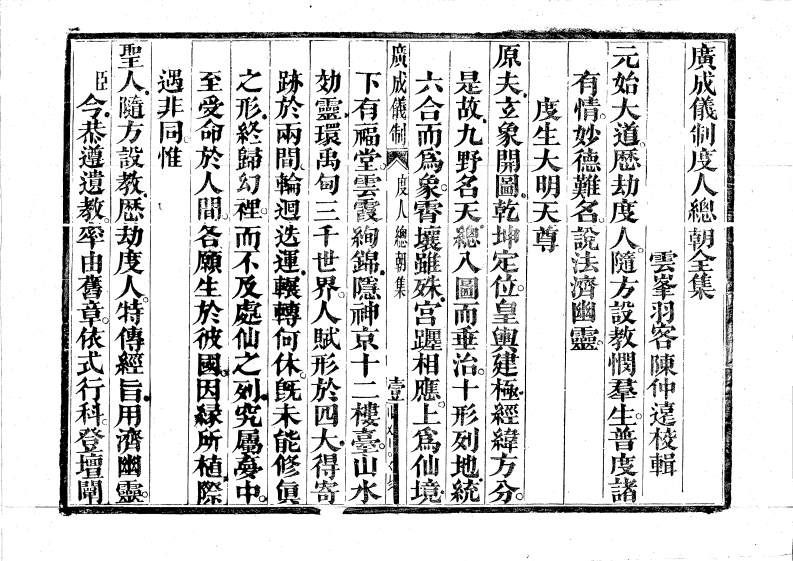 廣成儀制度人總朝全集
雲峯羽客陳仲遠校輯
元始大道。歷劫度人。隨方設教憫羣生。普度諸
有情。妙德難名。說法濟幽靈。
度生大明天尊
原夫。立象開圖。乾坤定位。皇輿建極。經緯方分。
是故。九野名天。總入圖而垂治。十形列地。統
六合而爲象。霄壤雖殊。宮躔相應。上爲仙境。
下有福堂。雲霞絢錦。隱神京十二樓臺。山水
効靈。環禹甸三千世界。人賦形於四大。得寄
跡於兩間。輪迴迭運。輾轉何休。旣未能修眞
之形。終歸幻裡。而不及處仙之列。究屬夢中。
至受命於人間。各願生於彼國。因緣所植。際
遇非同。惟
聖人。隨方設教。歷劫度人。特傳經旨。用濟幽靈。
臣今。恭遵遺教。率由舊章。依式行科。登壇闡
廣成儀制
度人總朝集
壹